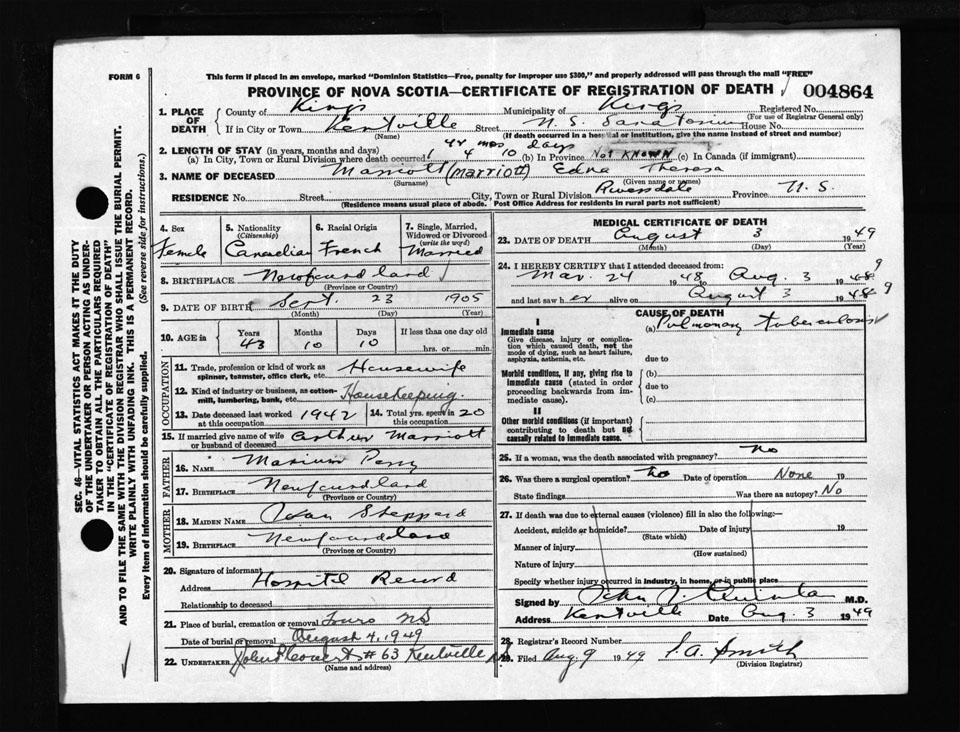 FORM 6
This form if placed in an envelope, marked "Dominion Statistics—Free, penalty for improper use $300," and properly addressed will pass through the mail "FREE"
PROVINCE OF NOVA SCOTIA—CERTIFICATE OF REGISTRATION OF DEATH 004864
1. PLACE OF DEATH County of Kings Municipality of Kings Registered No.
(For use of Registrar General only)
If in City or Town Kentville Street N.S. Sanatorium House No.
(Name) (If death occurred in a hospital or institution, give the name instead of street and number)
2. LENGTH OF STAY (in years, months and days) yr mos days
(a) In City, Town or Rural Division where death occurred 1 4 10 (b) In Province NOT KNOWN (c) In Canada (if immigrant)
3. NAME OF DECEASED Marriott (Marriott) Edna Theresa
(Surname) (Given name or names)
RESIDENCE No. Street City, Town or Rural Division Riversdale Province N.S.
(Residence means usual place of abode. Post Office Address for residents in rural parts not sufficient)
4. Sex Female
5. Nationality (Citizenship) Canadian
6. Racial Origin French
7. Single, Married, Widowed or Divorced (write the word) Married
8. BIRTHPLACE Newfoundland
(Province or Country)
9. DATE OF BIRTH Sept. 23 1905
(Month) (Day) (Year)
10. AGE in Years 43 Months 10 Days 10 If less than one day old
hrs. or min.
OCCUPATION
11. Trade, profession or kind of work as spinner, teamster, office clerk, etc. Housewife
12. Kind of industry or business, as cotton-mill, lumbering, bank, etc. Housekeeping.
13. Date deceased last worked at this occupation 1942 14. Total yrs. spent in this occupation 20
15. If married give name of wife or husband of deceased Arthur Marriott
FATHER
16. NAME Perry
17. BIRTHPLACE Newfoundland
(Province or Country)
MOTHER
18. MAIDEN NAME Sheppard
19. BIRTHPLACE Newfoundland
(Province or Country)
20. Signature of informant Hospital Record
Address
Relationship to deceased
21. Place of burial, cremation or removal Truro NS
Date of burial or removal August 4, 1949
22. UNDERTAKER # 63 Kentville NS
(Name and address)
MEDICAL CERTIFICATE OF DEATH
23. DATE OF DEATH August 3 1949
(Month) (Day) (Year)
24. I HEREBY CERTIFY that I attended deceased from:
Mar. 24 1948 to Aug. 3 1948 9
and last saw her alive on August 3 1948 9
CAUSE OF DEATH
I
Immediate cause (a) Pulmonary tuberculosis
Give disease, injury or complication which caused death, not the mode of dying, such as heart failure, asphyxia, asthenia, etc.
due to
Morbid conditions, if any, giving rise to immediate cause (stated in order proceeding backwards from immediate cause).
(b)
due to
(c)
II
Other morbid conditions (if important) contributing to death but not causally related to immediate cause.
25. If a woman, was the death associated with pregnancy? No
26. Was there a surgical operation? No Date of operation None 19
State findings Was there an autopsy? No
27. If death was due to external causes (violence) fill in also the following:—
Accident, suicide or homicide? Date of injury 19
(State which)
Manner of injury
(How sustained)
Nature of injury
Specify whether injury occurred in industry, in home, or in public place
Signed by John J. Quinlan M.D.
Address Kentville Date Aug. 3 1949
28. Registrar's Record Number
29. Filed Aug 9 1949 Smith
(Division Registrar)
SEC. 46—VITAL STATISTICS ACT MAKES IT THE DUTY
OF THE UNDERTAKER OR PERSON ACTING AS UNDER-
TAKER TO OBTAIN ALL THE PARTICULARS REQUIRED
IN THE "CERTIFICATE OF REGISTRATION OF DEATH"
AND TO FILE THE SAME WITH THE DIVISION REGISTRAR WHO SHALL ISSUE THE BURIAL PERMIT.
WRITE PLAINLY WITH UNFADING INK. THIS IS A PERMANENT RECORD.
Every item of information should be carefully supplied. (See reverse side for instructions.)